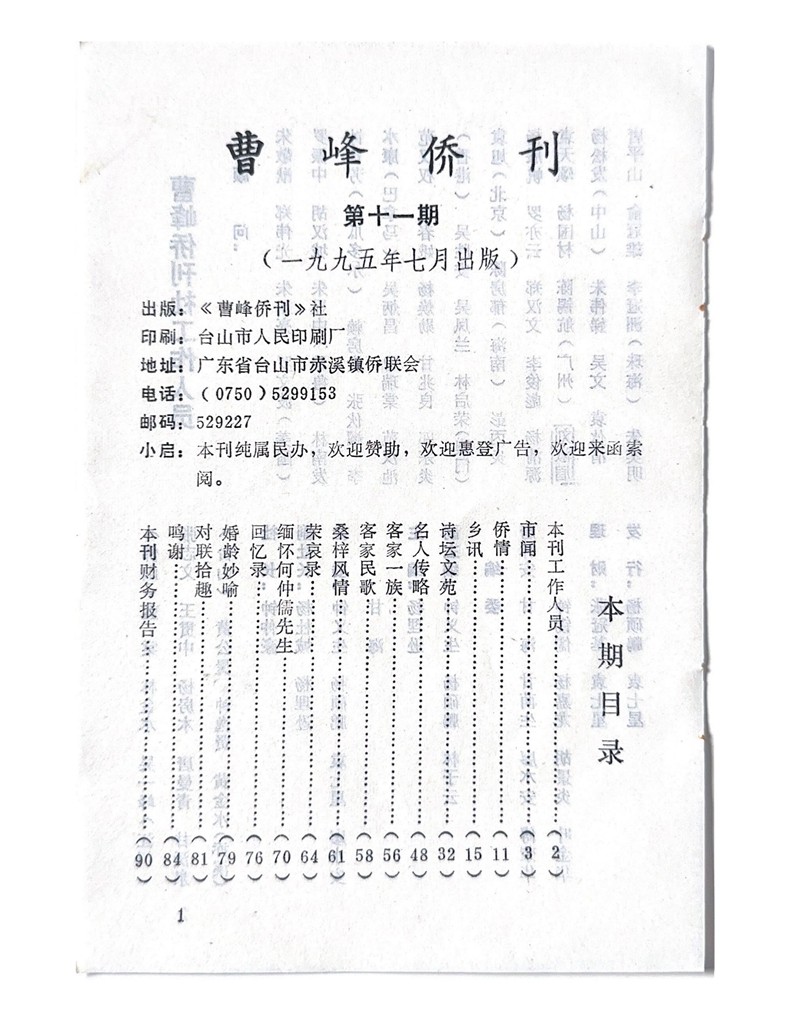 曹峰侨刊
第十一期
（一九九五年七月出版）
出版：《曹峰侨刊》社
印刷：台山市人民印刷厂
地址：广东省台山市赤溪镇侨联会
电话：（0750）5299153
邮码：529227
小启：本刊纯属民办，欢迎赞助，欢迎惠登广告，欢迎来函索
阅。
本期目录
本刊工作人员……（2）
市闻……（3）
侨情……（11）
乡讯……（15）
诗坛文苑……（32）
名人传略……（48）
客家一族……（56）
客家民歌……（58）
桑梓风情……（61）
荣哀录……（64）
缅怀何仲儒先生……（70）
回忆录……（76）
婚龄妙喻……（79）
对联拾趣……（81）
鸣谢……（84）
本刊财务报告……（90）
1